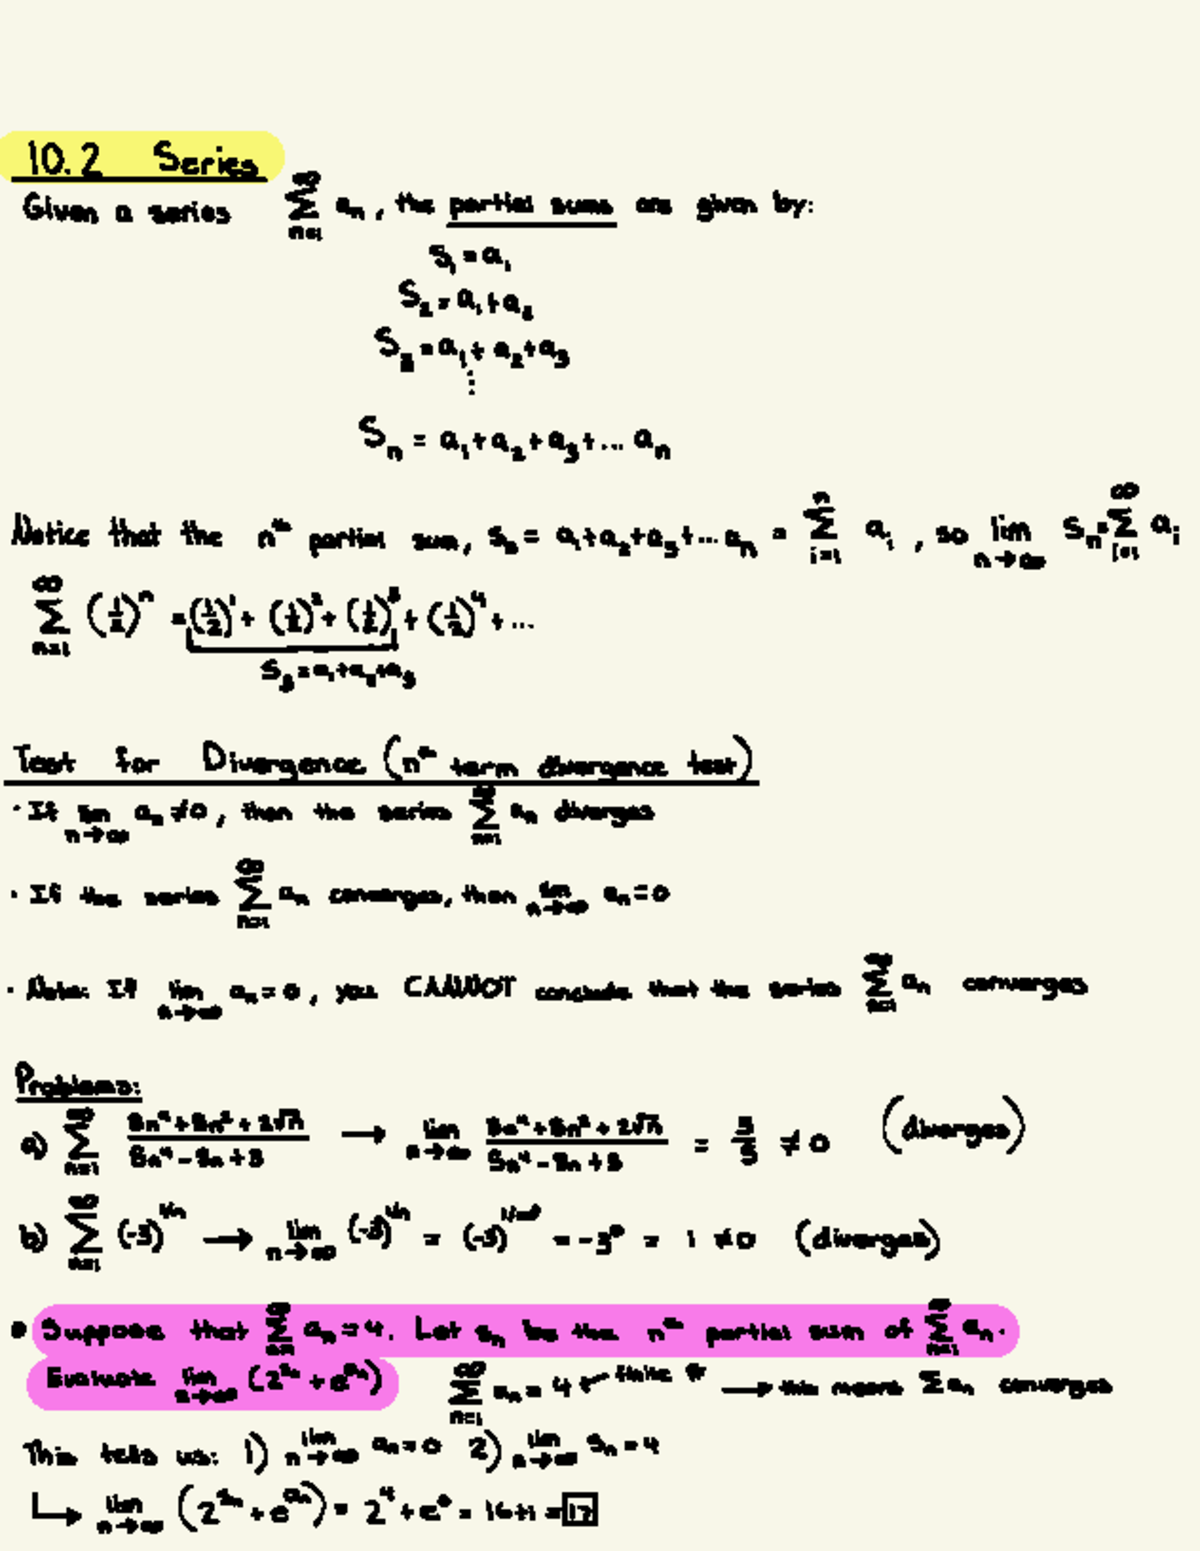 10.2 Series
Given a series ∑_{n=1}^{∞} a_n, the partial sums are given by:
S_1 = a_1
S_2 = a_1 + a_2
S_3 = a_1 + a_2 + a_3
⋮
S_n = a_1 + a_2 + a_3 + ... a_n
Notice that the n^th partial sum, S_n = a_1 + a_2 + a_3 + ... a_n = ∑_{i=1}^{n} a_i, so lim_{n→∞} S_n = ∑_{i=1}^{∞} a_i
∑_{n=1}^{∞} (1/2)^n = (1/2)^1 + (1/2)^2 + (1/2)^3 + (1/2)^4 + ...
S_3 = a_1 + a_2 + a_3
Test for Divergence (n^th term divergence test)
· If lim_{n→∞} a_n ≠ 0, then the series ∑_{n=1}^{∞} a_n diverges
· If the series ∑_{n=1}^{∞} a_n converges, then lim_{n→∞} a_n = 0
· Note: If lim_{n→∞} a_n = 0, you CANNOT conclude that the series ∑_{n=1}^{∞} a_n converges
Problems:
a) ∑_{n=1}^{∞} → lim_{n→∞} ≠ 0 (diverges)
b) ∑_{n=1}^{∞} (-3)^{1/n} → lim_{n→∞} (-3)^{1/n} = (-3)^{1/∞} = -3^0 = 1 ≠ 0 (diverges)
• Suppose that ∑_{n=1}^{∞} a_n = 4. Let s_n be the n^th partial sum of ∑_{n=1}^{∞} a_n.
Evaluate lim_{n→∞} (2^{s_n} + e^{a_n}) ∑_{n=1}^{∞} a_n = 4 ← finite # → this means ∑a_n converges
This tells us: 1) lim_{n→∞} a_n = 0 2) lim_{n→∞} s_n = 4
↳ lim_{n→∞} (2^{s_n} + e^{a_n}) = 2^4 + e^0 = 16+1 = 17